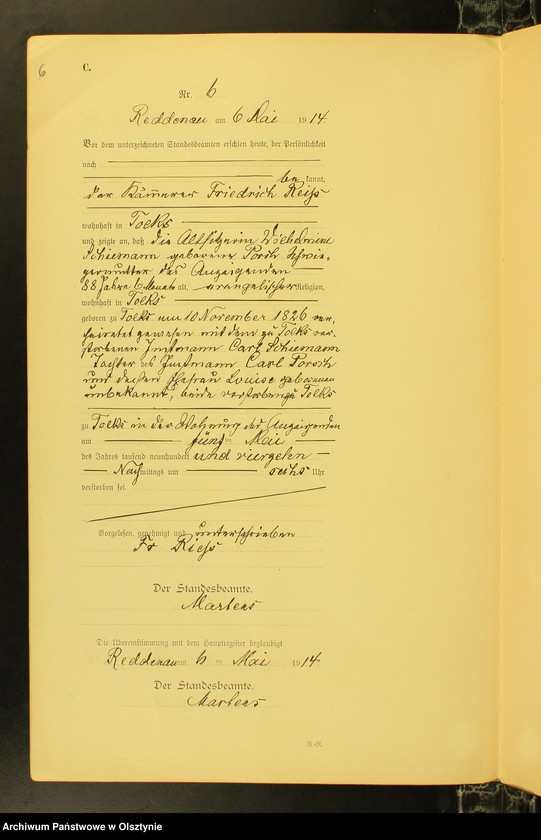 6
C.
Nr. 6
Reddenau am 6 Mai 1914
Vor dem unterzeichneten Standesbeamten erschien heute, der Persönlichkeit
nach
bekannt,
der Kämmerer Friedrich Reiss
wohnhaft in Tolks
und zeigte an, daß die Altsitzerin Wilhelmine
Schiemann geborene Porsch Schwie-
germutter des Anzeigenden
88 Jahre 6 Monate alt, evangelischer Religion,
wohnhaft in Tolks
geboren zu Tolks am 10 November 1826 ver-
heiratet gewesen mit dem zu Tolks ver-
storbenen Instmann Carl Schiemann
Tochter des Instmann Carl Porsch
und dessen Ehefrau Louise geborenen
unbekannt, beide verstorben zu Tolks
zu Tolks in der Wohnung des Anzeigenden
am fünften Mai
des Jahres tausend neunhundert und vierzehn
Nachmittags um sechs Uhr
verstorben sei.
Vorgelesen, genehmigt und unterschrieben
Fr Riess
Der Standesbeamte.
Martens
Die Übereinstimmung mit dem Hauptregister beglaubigt
Reddenau am 6 ten Mai 1914
Der Standesbeamte.
Martens
Archiwum Państwowe w Olsztynie